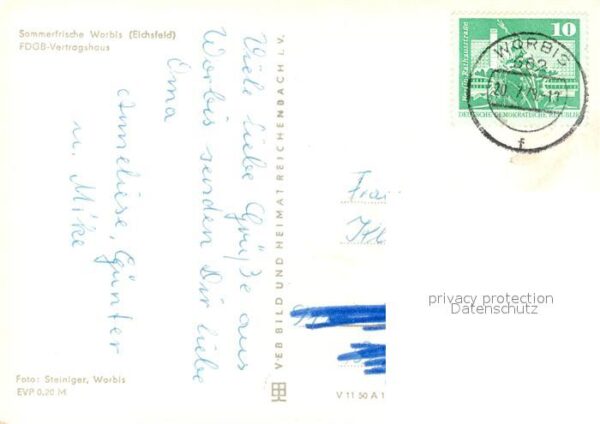 Sommerfrische Worbis (Eichsfeld)
FDGB-Vertragshaus
Viele liebe Grüße aus
Worbis senden Dir liebe
Oma
Anneliese, Günter
u. Mike
Foto: Steiniger, Worbis
EVP 0,20 M
VEB BILD UND HEIMAT REICHENBACH I. V.
V 11 50 A 1
10
Rathausstraße
DEUTSCHE DEMOKRATISCHE REPUBLIK
WORBIS
f
privacy protection
Datenschutz